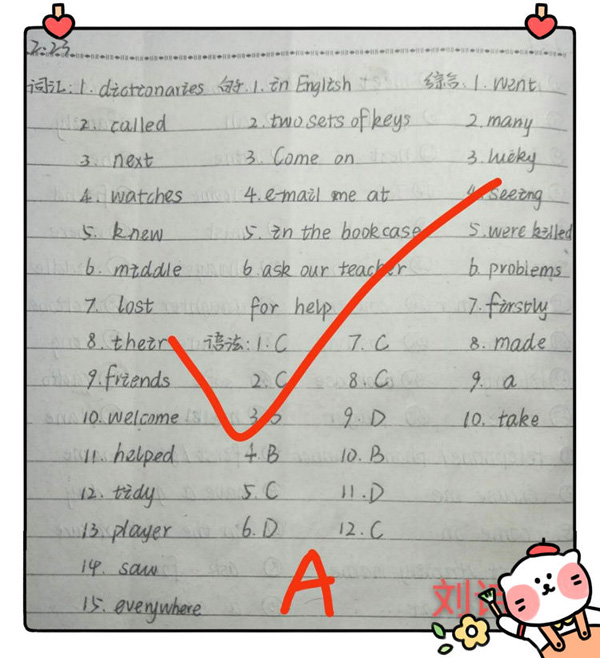 2.23.
词汇: 1. dictionaries 句子 1. in English 综合: 1. went
2. called 2. two sets of keys 2. many
3. next 3. Come on 3. lucky
4. watches 4. e-mail me at 4. seeing
5. knew 5. in the bookcase 5. were killed
6. middle 6. ask our teacher 6. problems
7. lost for help 7. firstly
8. their 语法: 1. C 7. C 8. made
9. friends 2. C 8. C 9. a
10. welcome 3. 9. D 10. take
11. helped 4. B 10. B
12. tidy 5. C 11. D
13. player 6. D 12. C
14. saw
15. everywhere
A
刘